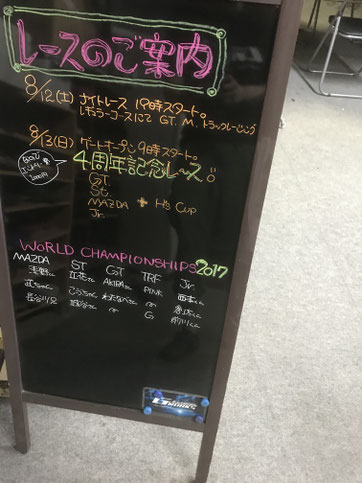 レースのご案内
8/12(土) ナイトレース 19時スタート。
レギュラーコースにて GT. M. トラックレーシング
8/13(日) ゲートオープン 9時スタート。
4周年記念レース!!
GT.
St.
MAZDA + H's Cup
Jr.
WORLD CHAMPIONSHIPS 2017
MAZDA ST GT TRF Jr
浅野さん AKIRAさん PINK 西本くん
わたなべさん
長谷川兄 G 前川くん